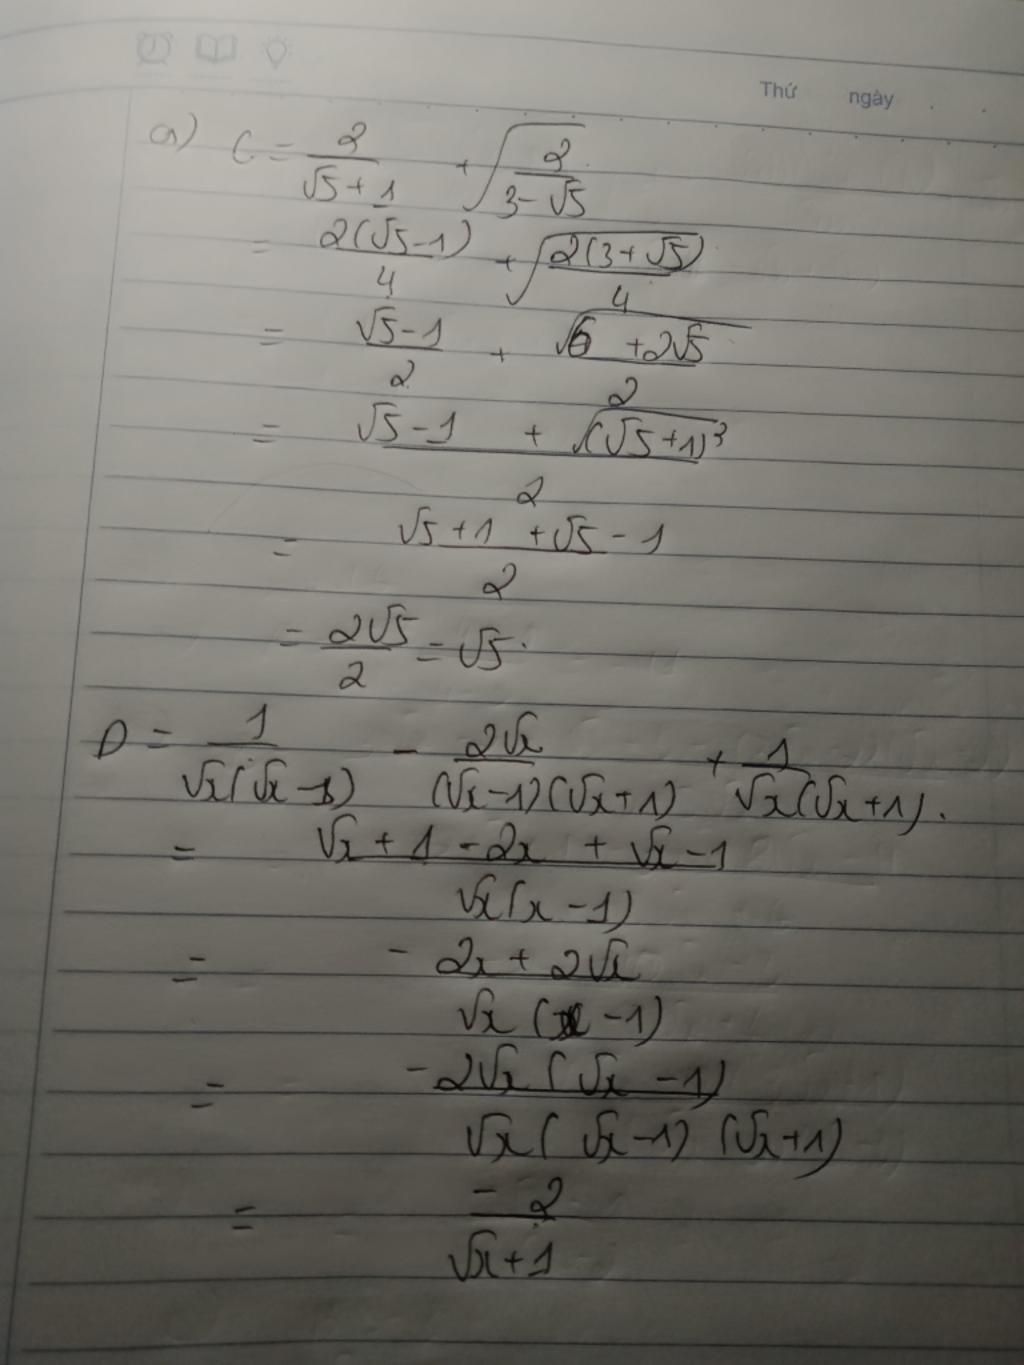 Thứ ngày . .
a) C = \frac{2}{\sqrt{5}+1} + \sqrt{\frac{2}{3-\sqrt{5}}}
= \frac{2(\sqrt{5}-1)}{4} + \sqrt{\frac{2(3+\sqrt{5})}{4}}
= \frac{\sqrt{5}-1}{2} + \frac{\sqrt{6+2\sqrt{5}}}{2}
= \frac{\sqrt{5}-1 + \sqrt{(\sqrt{5}+1)^2}}{2}
= \frac{\sqrt{5}+1+\sqrt{5}-1}{2}
= \frac{2\sqrt{5}}{2} = \sqrt{5}.
D = \frac{1}{\sqrt{x}(\sqrt{x}-1)} - \frac{2\sqrt{x}}{(\sqrt{x}-1)(\sqrt{x}+1)} + \frac{1}{\sqrt{x}(\sqrt{x}+1)}.
= \frac{\sqrt{x}+1-2x+\sqrt{x}-1}{\sqrt{x}(x-1)}
= \frac{-2x+2\sqrt{x}}{\sqrt{x}(x-1)}
= \frac{-2\sqrt{x}(\sqrt{x}-1)}{\sqrt{x}(\sqrt{x}-1)(\sqrt{x}+1)}
= \frac{-2}{\sqrt{x}+1}